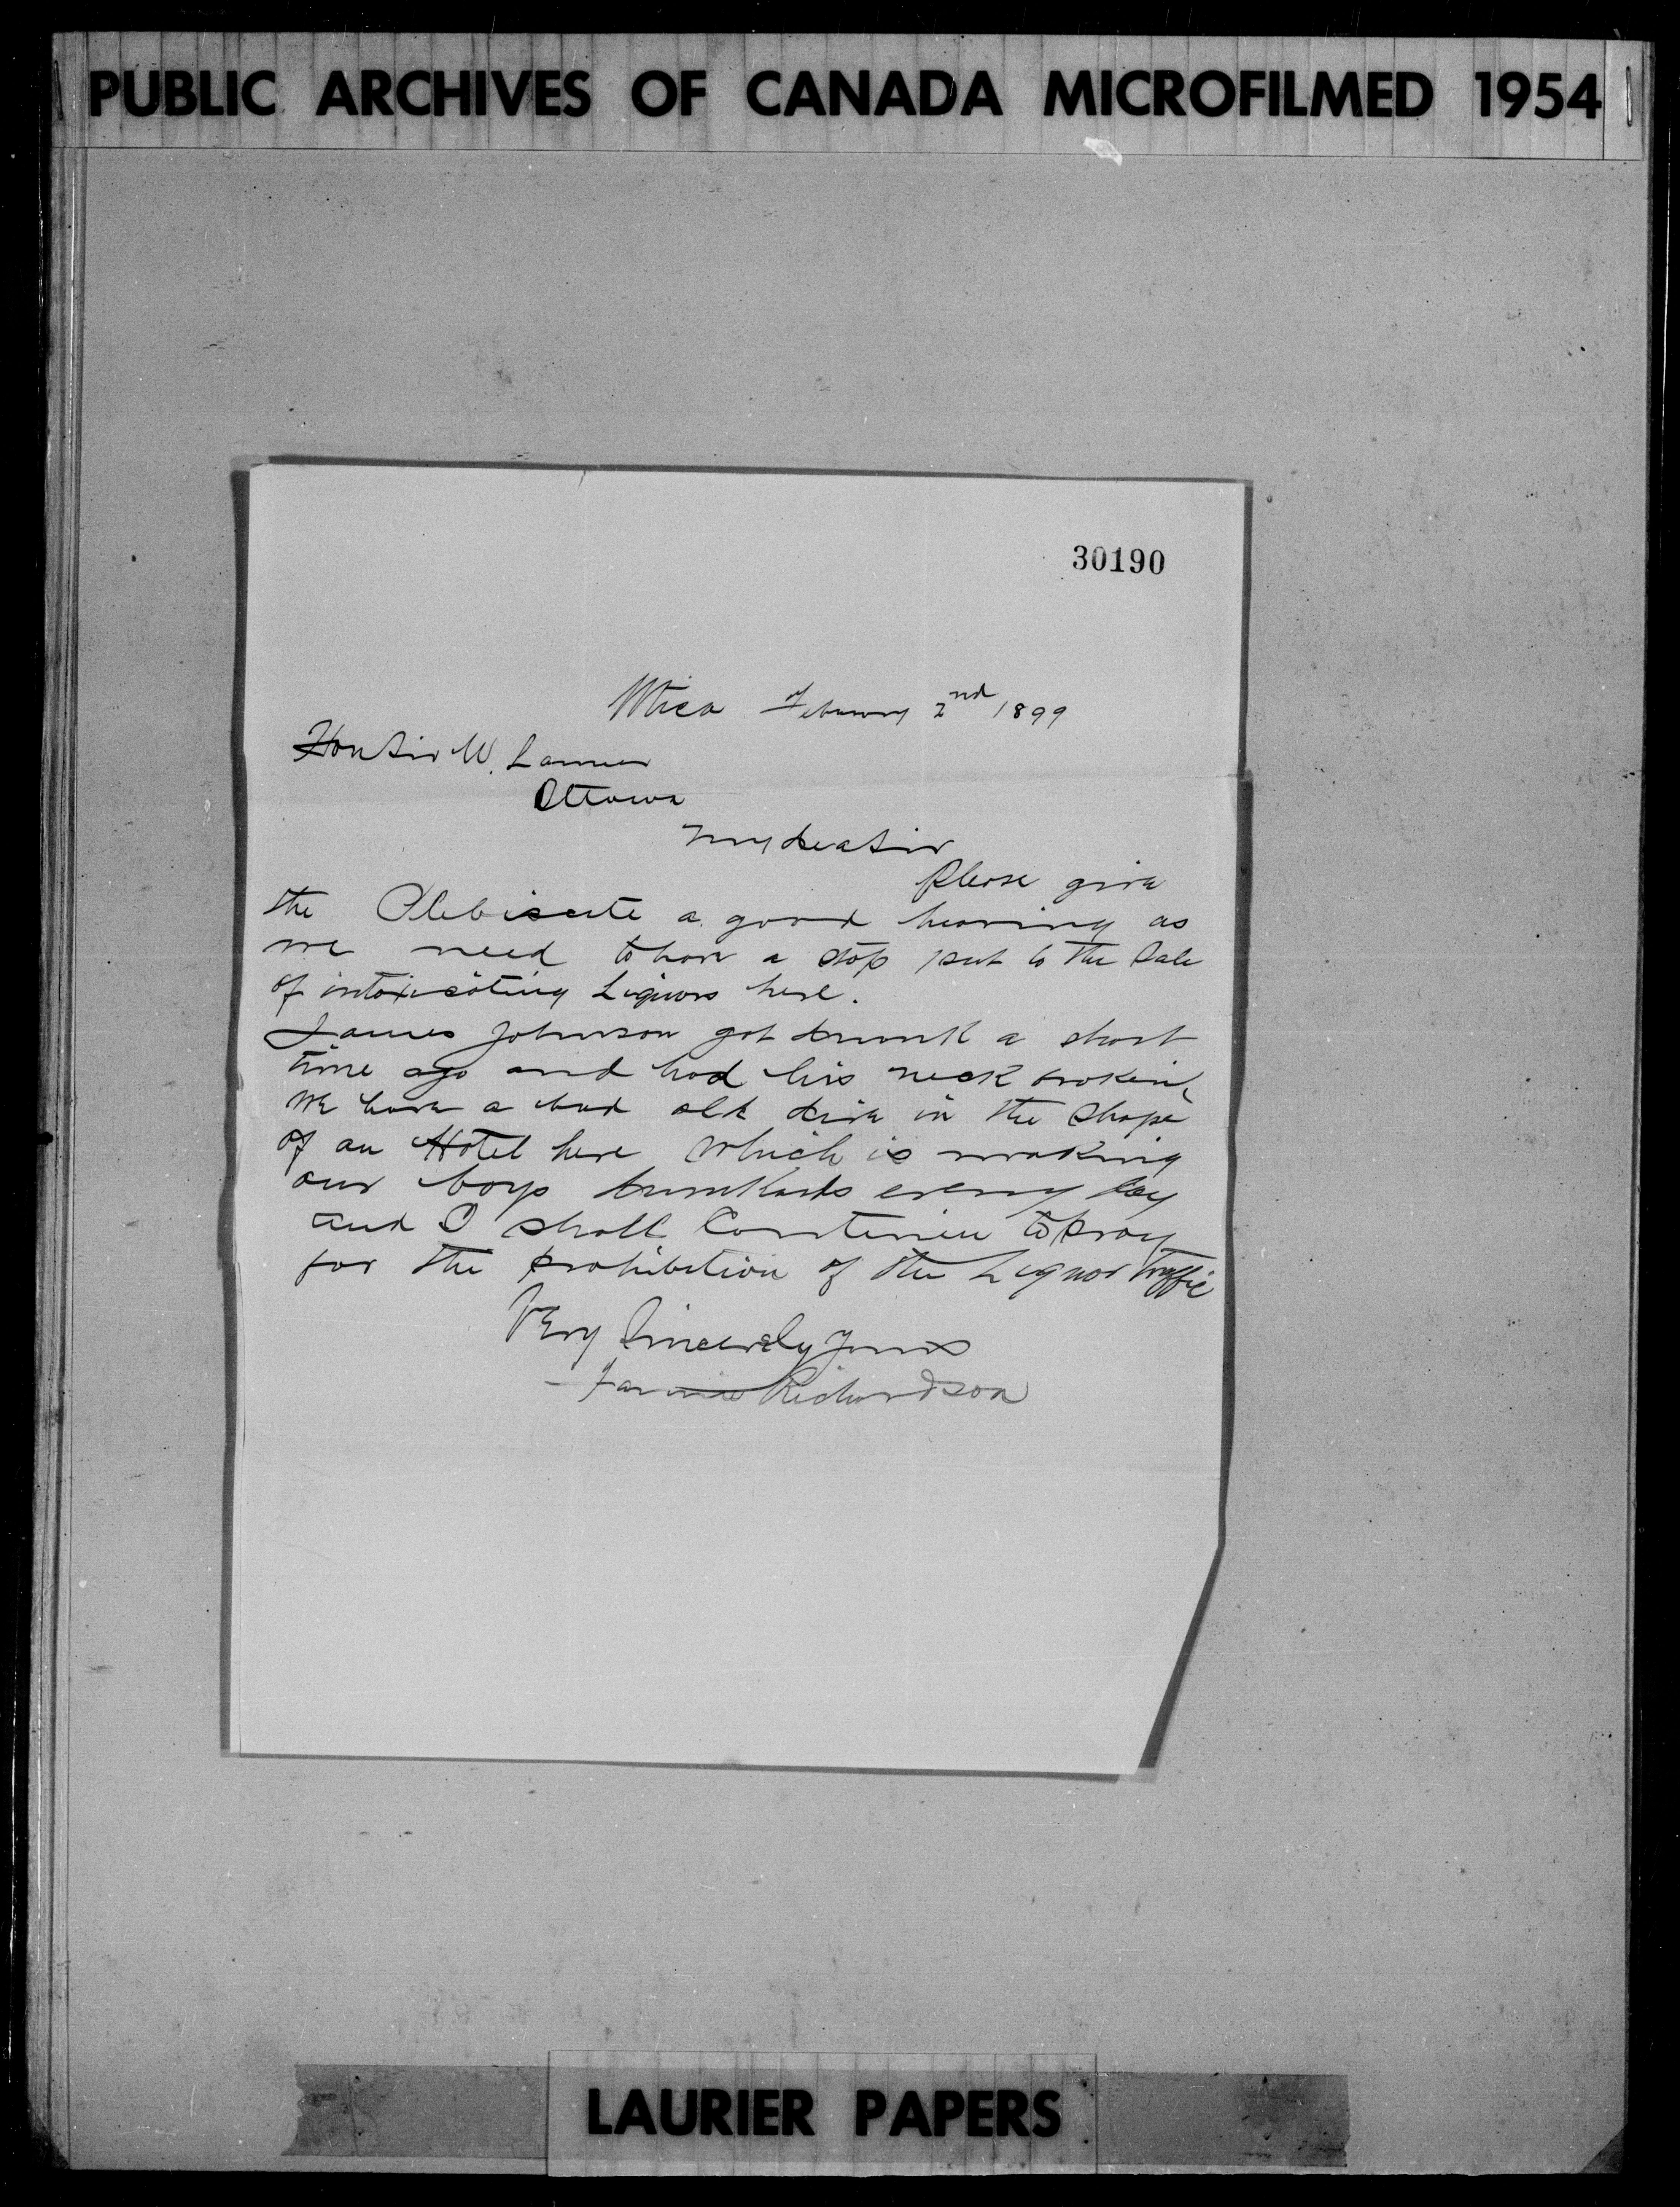 PUBLIC ARCHIVES OF CANADA MICROFILMED 1954
30190
Utica February 2nd 1899
Hon Sir W. Laurier
Ottawa
My dea Sir
Please give
the Plebiscite a good hearing as
we need to have a stop put to the Sale
of intoxicating Liquors here.
James Johnson got drunk a short
time ago and had his neck broken
we have a bad old dive in the Shape
of an Hotel here which is making
our boys drunkards every day
and I shall Continue to pray
for the prohibition of the Liquor Traffic
Very Sincerely Yours
Fannie Richardson
LAURIER PAPERS